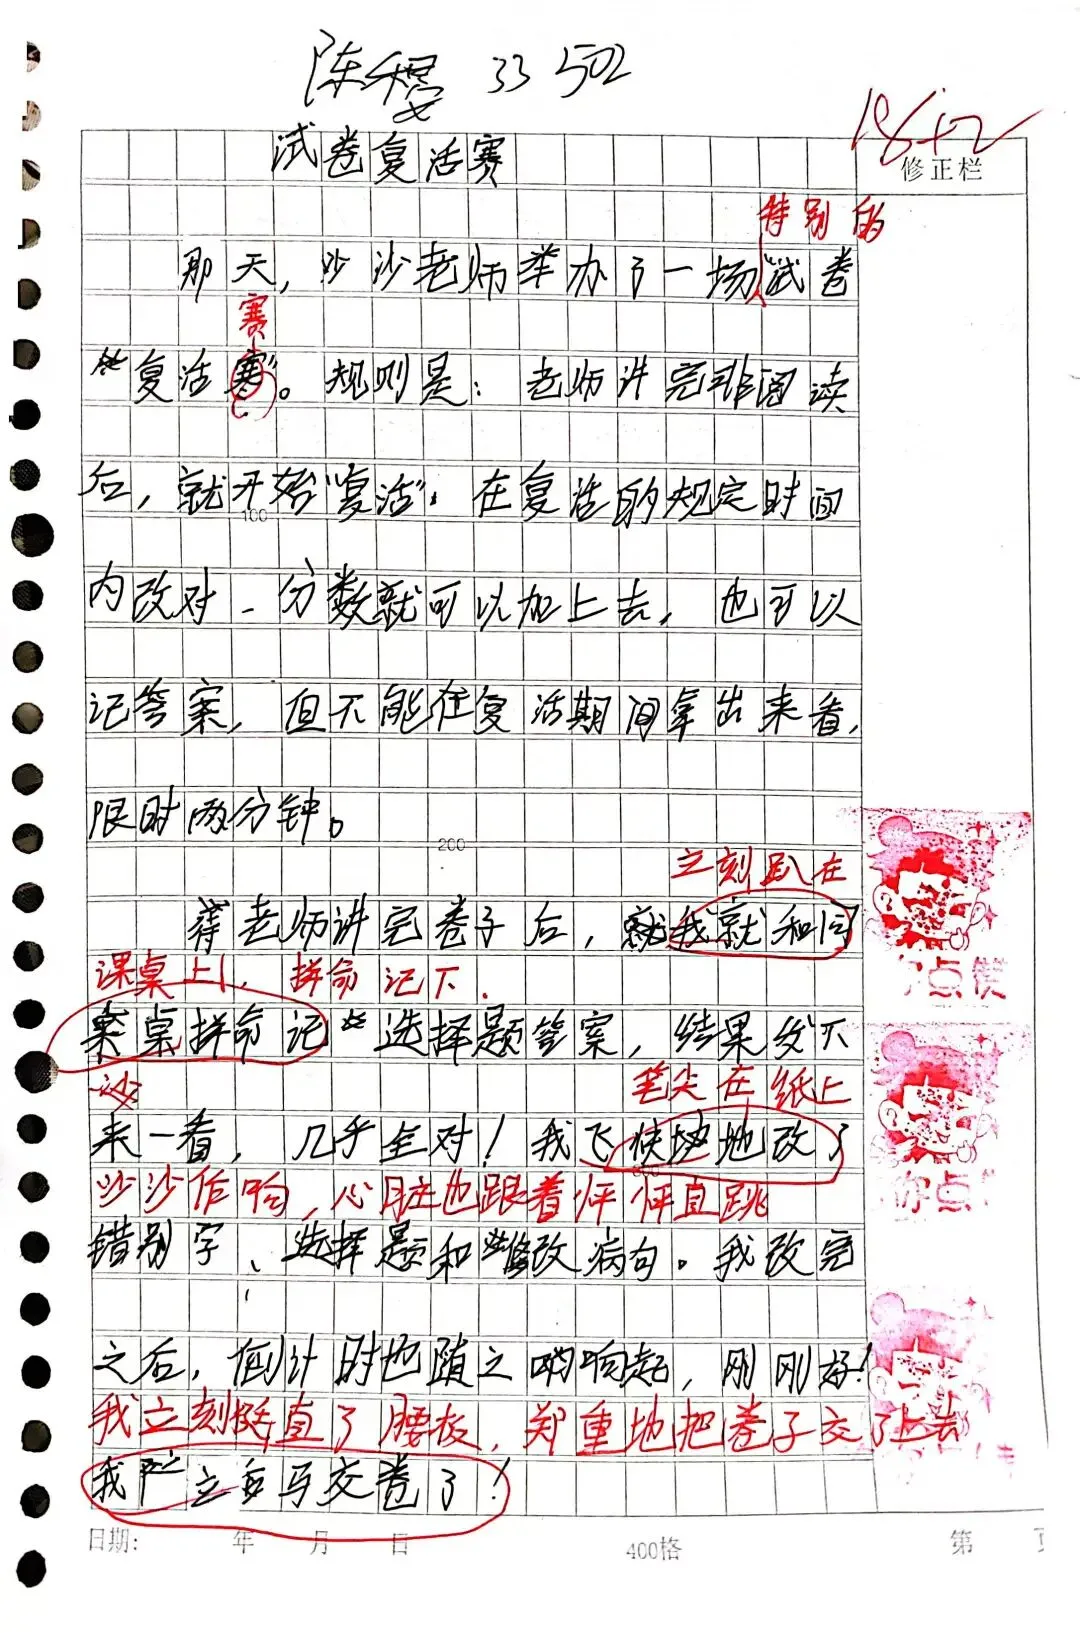 陈稷 33 502
18+2
试卷复活赛
修正栏
特别的
那天，沙沙老师举办了一场“试卷
赛
“复活赛”。规则是：老师讲完非阅读
后，就开始“复活”。在复活的规定时间
100
内改对，分数就可以加上去，也可以
记答案，但不能在复活期间拿出来看，
限时两分钟。
200
立刻趴在
等老师讲完卷子后，我就和同
课桌上，拼命记下
桌拼命记选择题答案，结果发下
沙
笔尖在纸上
来一看，几乎全对！我飞快地改了
沙沙作响，心脏也跟着怦怦直跳
错别字、选择题和修改病句。我改完
之后，倒计时也随之响起，刚刚好！
我立刻挺直了腰板，郑重地把卷子交了上去
我立马交卷了！
日期： 年 月 日 400格 第 页
你点赞
你点